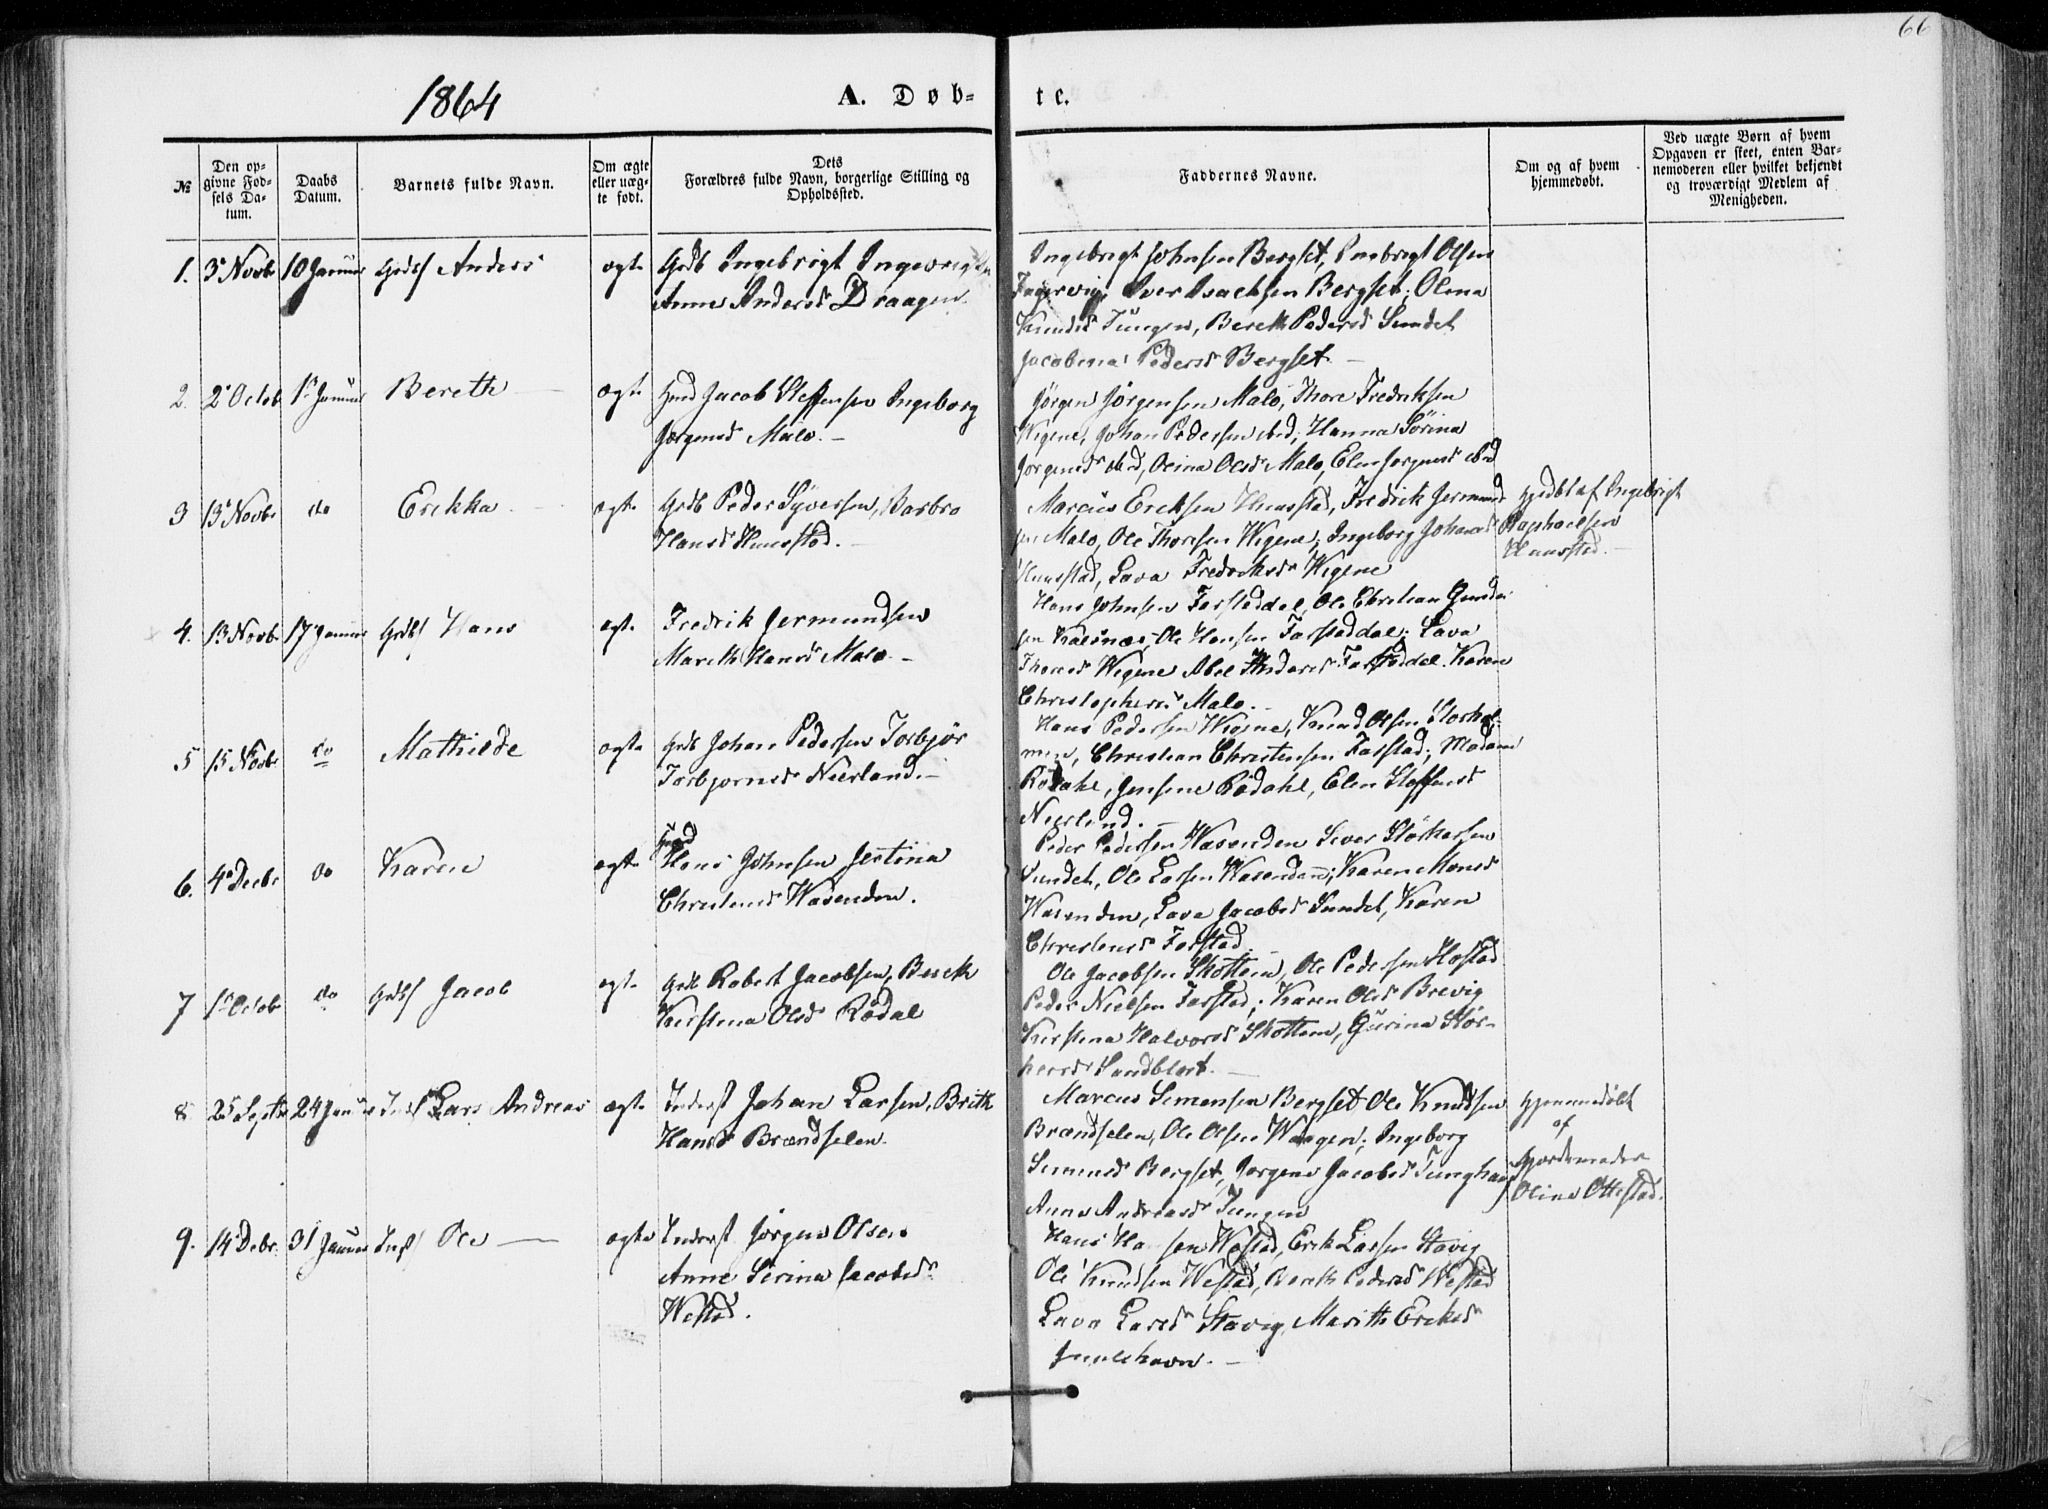 66
1864
A. Døb-
te.
№
Den op-
givne Fød-
sels Da-
tum.
Daabs
Datum.
Barnets fulde Navn.
Om ægte
eller uæg-
te født.
Dets
Forældres fulde Navn, borgerlige Stilling og
Opholdssted.
Faddernes Navne.
Om og af hvem
hjemmedøbt.
Ved uægte Børn af hvem
Opgaven er skeet, enten Bar-
nemoderen eller hvilket bekjendt
og troværdigt Medlem af
Menigheden.
1. 3 Novbr 10 Januar Anders ægte Grdb Ingebrigt
Anne Andersd Draagen
Ingebrigt Johnsen Bergset, Olsen
Iver Isachsen Bergset; Olina
Knudsd Tungen, Bereth Pedersd Sundet
Jacobina Pedersd Bergset. —
2. 2 Octob 1 Januar Bereth — ægte Jacob Steffensen Ingeborg
Jørgensd Malo. —
Jørgen Jørgensen Malo, Thore Fredriksen
Wigene, Johan Pedersen ibid; Hanna Sørina
Jørgensd ibid, Olina Olsd Malo, Elen Jørgensd ibid
3 13 Novbr do Erikka — ægte Grdb Peder Syversen, Barbro
Hansd Hunstad. —
Marcus Ericksen Hunstad, Fredrik Jermund
sen Malo, Ole Thoresen Wigene; Ingeborg Johansd
Hunstad, Lava Fredriksd Wigene
Hjdbt af Ingebrigt
Raphaelsen
Hunstad. —
4. 13 Novbr 17 Januar Hans ægte Fredrik Jermundsen
Mareth Hansd Malo —
Hans Johnsen Farstaddal, Ole Christian
sen Ole Hansen Farstaddal; Lava
Thoresd Wigene Abel Andersd Farstaddal. Karen
Christophersd Malo. —
5 15 Novbr do Mathilde ægte Grdb Johan Pedersen Torbjør
Torbjørnsd Neerland. —
Hans Pedersen Wigene, Knud Olsen Storhol-
men, Christian Christensen Farstad; Madam
Rødahl, Jensine Rødahl, Elen Steffensd
Neerland. —
6. 4 Decbr do Karen ægte Hans Johnsen Jertina
Christensd Wasenden.
Peder Pedersen Wasenden Siver Størkersen
Sundet, Ole Larsen Wasenden; Karen Monsd
Wasenden, Lava Jacobsd Sundet, Karen
Christensd Farstad. —
7 1 Octob do Jacob ægte Grdb Robert Jacobsen, Bereth
Kirstina Olsd Rødal
Ole Jacobsen Skottem, Ole Pedersen Hostad
Peder Nielsen Farstad; Karen Olsd Brevig
Kirstina Halvorsd Skottem, Gurina Stør-
kersd Sandblost. —
8 25 Septbr 24 Januar Lars Andreas ægte Inderst Johan Larsen, Brith
Hansd Brændselen.
Marcus Simonsen Bergset Ole Knudsen
Brændselen, Ole Olsen Waagen; Ingeborg
Simonsd Bergset, Jørgine Jacobsd Tunghaug
Anne Andreasd Tungen
Hjemmedøbt
af
Gjordemoder
Oline Ottestad.
9. 14 Debr. 31 Januar Ole — ægte Inderst Jørgen Olsen
Anne Serina Jacobsd
Westad.
Hans Hansen Westad, Erik Larsen Stavig
Ole Knudsen Westad, Bereth Pedersd Westad
Lava Larsd Stavig, Marith Eriksd
Juulshavn. —